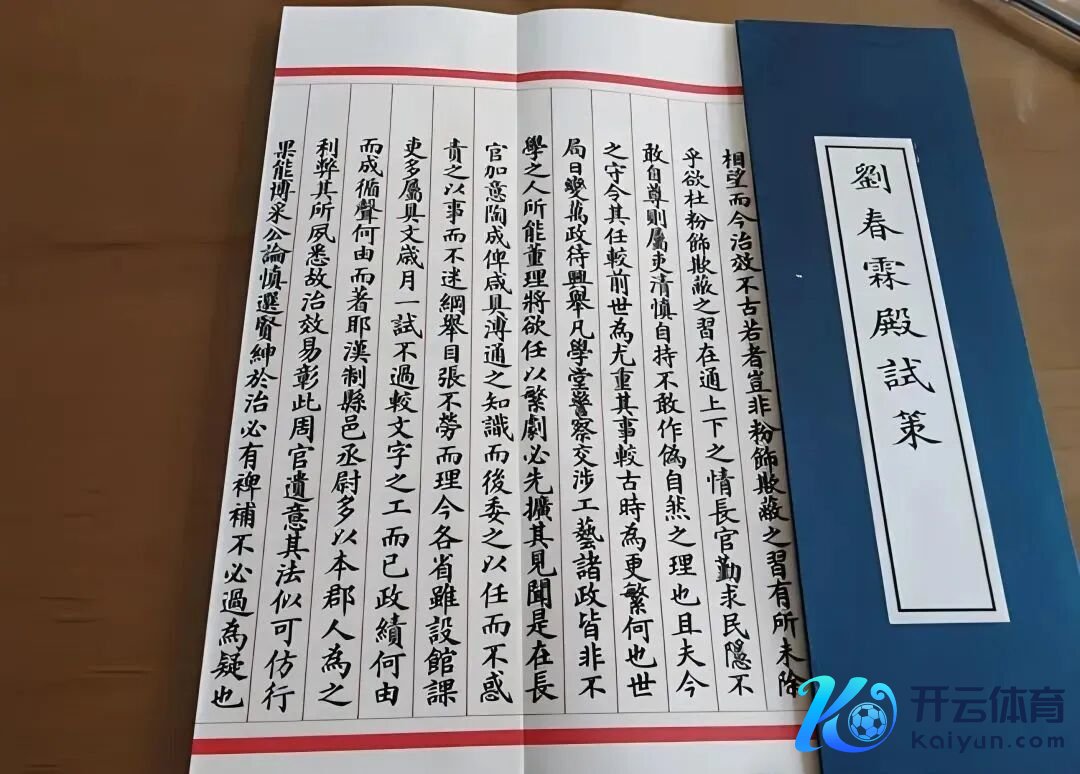 劉春霖殿試策
相望而今治效不古若者豈非粉飾欺蔽之習有所未除
乎欲杜粉飾欺蔽之習在通上下之情長官勤求民隱不
敢自尊則屬吏清慎自持不敢作偽自然之理也且夫今
之守令其任較前世為尤重其事較古時為更繁何也世
局日變萬政待興舉凡學堂警察交涉工藝諸政皆非不
學之人所能董理將欲任以繁劇必先擴其見聞是在長
官加意陶成俾咸具溥通之知識而後委之以任而不惑
責之以事而不迷綱舉目張不勞而理今各省雖設館課
吏多屬具文歲月一試不過較文字之工而已政績何由
而成循聲何由而著耶漢制縣邑丞尉多以本郡人為之
利弊其所夙悉故治效易彰此周官遺意其法似可仿行
果能博采公論慎選賢紳於治必有裨補不必過為疑也
开云体育
kaiyun.com